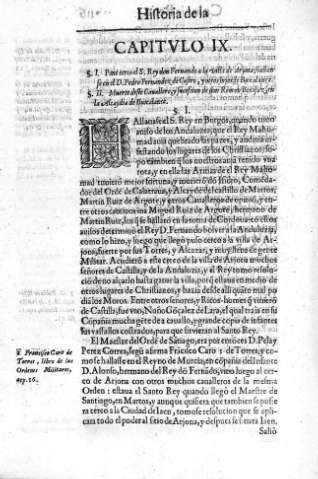 Historia de la
CAPITVLO IX.
§. I. Pone cerco el S. Rey don Fernando a la villa de Arjona, hallase
en el D. Pedro Fernandez de Castro, y otros
§. II. Muerte deste Cavallero, y sucession de don Roman de
la Alcaydia de
§. I.
Hallavase el S. Rey en Burgos, quando tuvo
aviso de los Andaluzes, que el Rey Maho-
mad avia quebrado las pazes, y andava in-
festando los lugares de los Christianos: su-
po tambien q̃ los nuestros avia tenido una
rota, y en ella las Armas de el Rey Maho-
mad tuvieró mejor fortuna, y muerto dó Isidro, Comẽda-
dor del Ordẽ de Calatrava, y Alcayde del castillo de Martos,
Martin Ruiz de Argote, y otros Cavalleros de opinió, y en-
tre otros cautivos iva Miguel Ruiz de Argote, hermano de
Martin Ruiz,
sos determinó el Rey D. Fernando bolver a la Andaluzia,
como lo hizo, y luego que llegó puso cerco a la villa de Ar-
jona, fuerte por sus Torres, y Alcazar, y muy llena de gente
Acudieró a este cerco de la villa de Arjona muchos
señores de Castilla, y de la Andaluzia, y el Rey tomo resolu-
ción de no alçarlo hasta ganar la villa, porq̃ estava en medio de
otros lugares de Christianos, y hazia desde allí quãto mal po
dia los Moros. Entre otros señores, y Ricos-homes q̃ viniero
de Castilla, fue uno, Nuño Gõçalez de Lara, el qual traia en su
Cópañia mucha gẽte de a cavallo, y grande copia de infantes
sus vassallos costeados, para que sirvieran al Santo Rey.
El Maestre del Ordẽ de Sãtiago, era por entonces D. Pelay
Perez Correa, segú afirma Frãcisco Caro 1 de Torres, y co-
mo se hallasse en el Reyno de Murcia, en cópañia del Infante
D. Alonso, hermano del Rey dó Fernãdo, vino luego al cer-
co de Arjona con otros muchos cavalleros de la mesma
Orden: estava el Santo Rey quando llegó el Maestre de
Santiago, en Martos, y aunque quisiera que tambien se pusie
ra cerco a la Ciudad de Iaen, tomose resolucion que se apli-
cara todo el poder al sitio de Arjona, y despues se iria a Iaen.
Salió
1 Francisco Caro de
Torres, libro de las
Ordenes Militares,